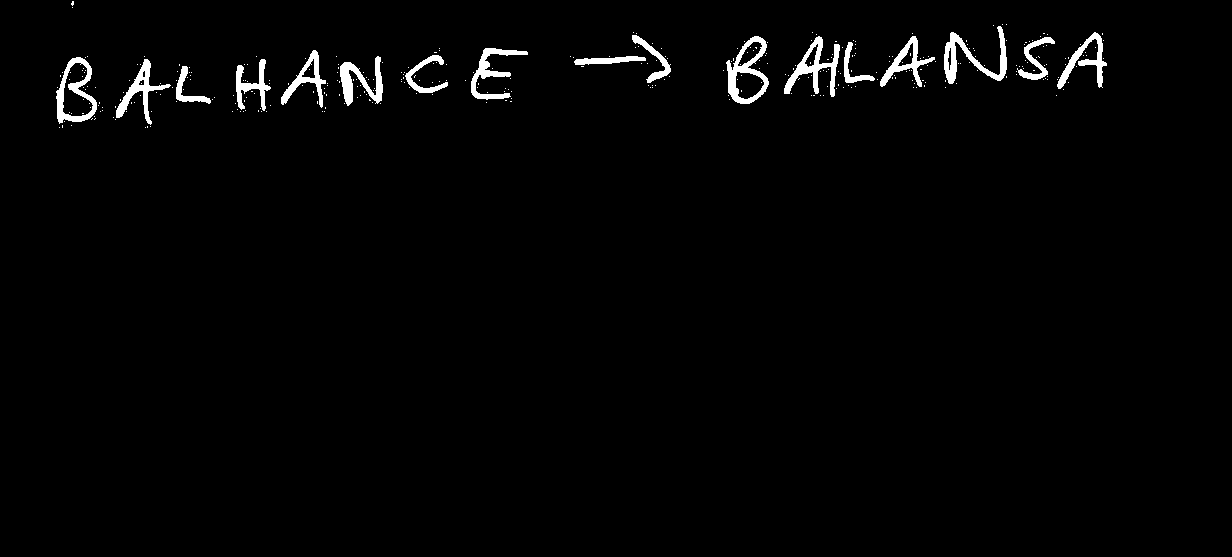 BALHANCE → BAILANSA